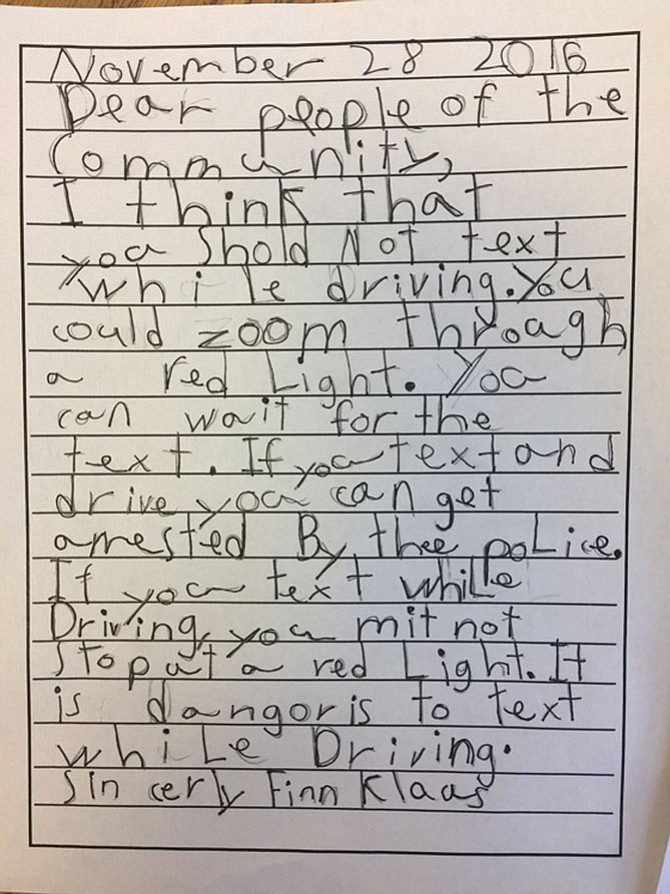 November 28 2016
Dear people of the
Community,
I think that
you Shold Not text
while driving. You
could zoom throagh
a red Light. You
can wait for the
text. If you text and
drive you can get
arrested By thee poLice.
If you text whiLe
Driving, you mit not
Stop at a red Light. It
is dangoris to text
whiLe Driving.
Sincerly Finn Klaas